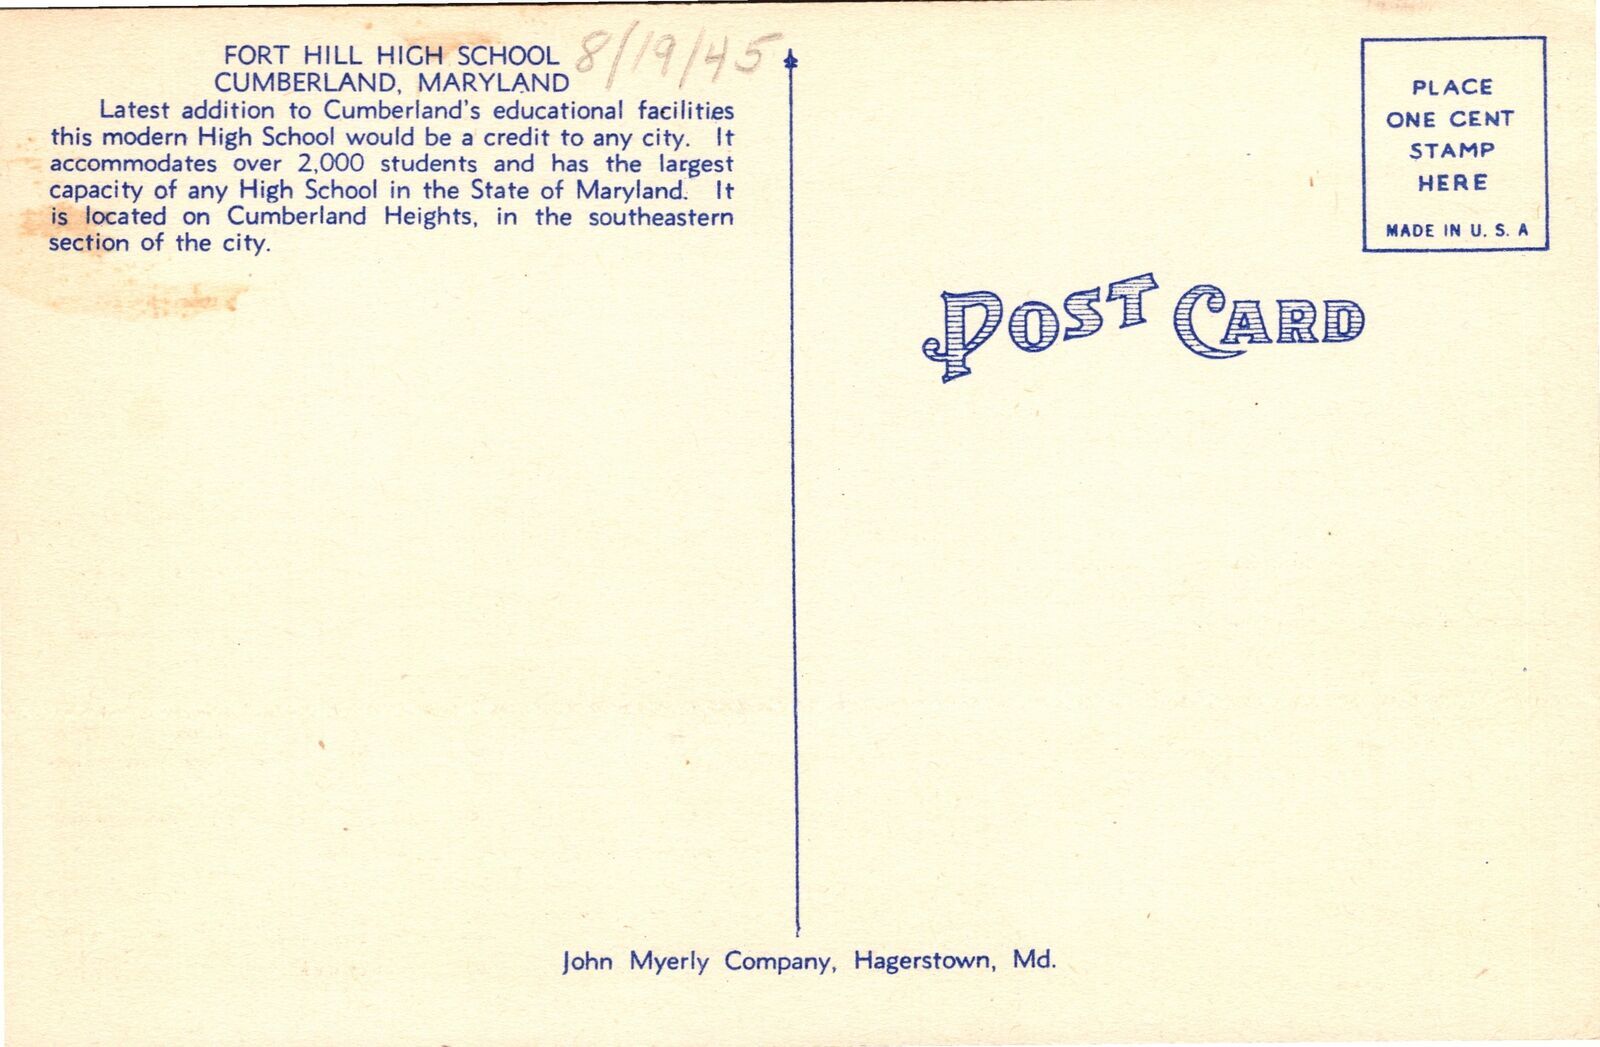 FORT HILL HIGH SCHOOL
CUMBERLAND, MARYLAND
8/19/45
Latest addition to Cumberland's educational facilities
this modern High School would be a credit to any city. It
accommodates over 2,000 students and has the largest
capacity of any High School in the State of Maryland. It
is located on Cumberland Heights, in the southeastern
section of the city.
PLACE
ONE CENT
STAMP
HERE
MADE IN U. S. A
POST CARD
John Myerly Company, Hagerstown, Md.